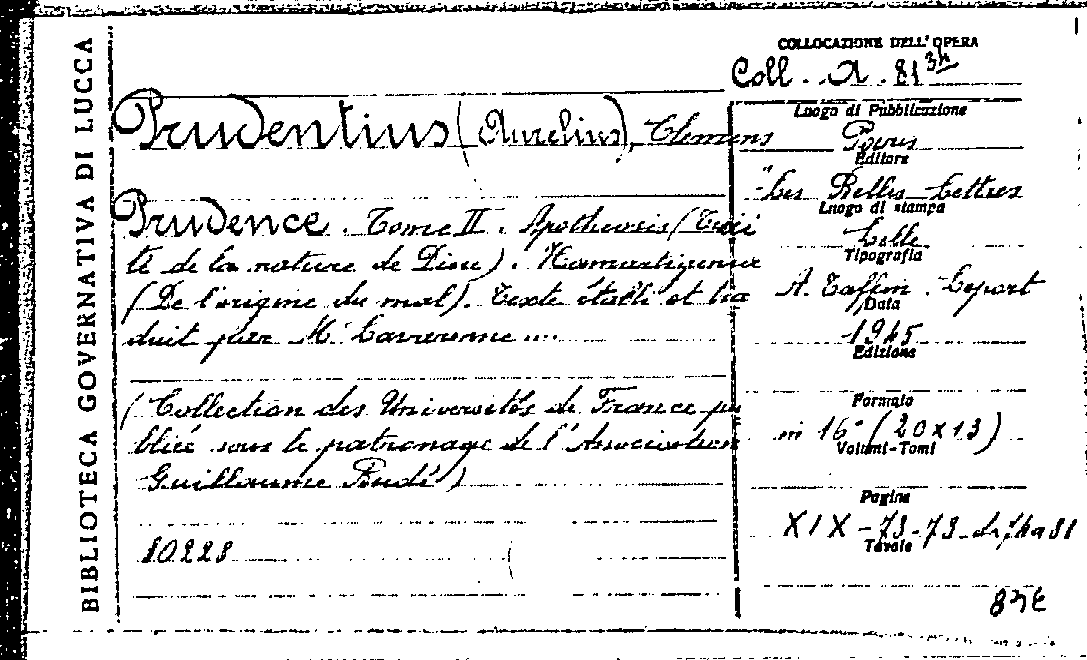 BIBLIOTECA GOVERNATIVA DI LUCCA
COLLOCAZIONE DELL'OPERA
Coll. A. 81
Prudentius (Aurelius), Clemens
Prudence. Tome II. Apotheosis (Trai
té de la nature de Dieu). Hamartigenie
(De l'origine du mal). Texte établi et tra
duit par M. Lavarenne ....
(Collection des Universités de France pu
bliée sous le patronage de l'Association
Guillaume Budé)
80228
Luogo di Pubblicazione
Paris
Editore
"Les Belles Lettres
Luogo di stampa
Lille
Tipografia
A. Taffin. Lefort
Data
1945
Edizione
Formato
in 16° (20x13)
Volumi-Tomi
Pagine
XIX-73-73-
Tavole